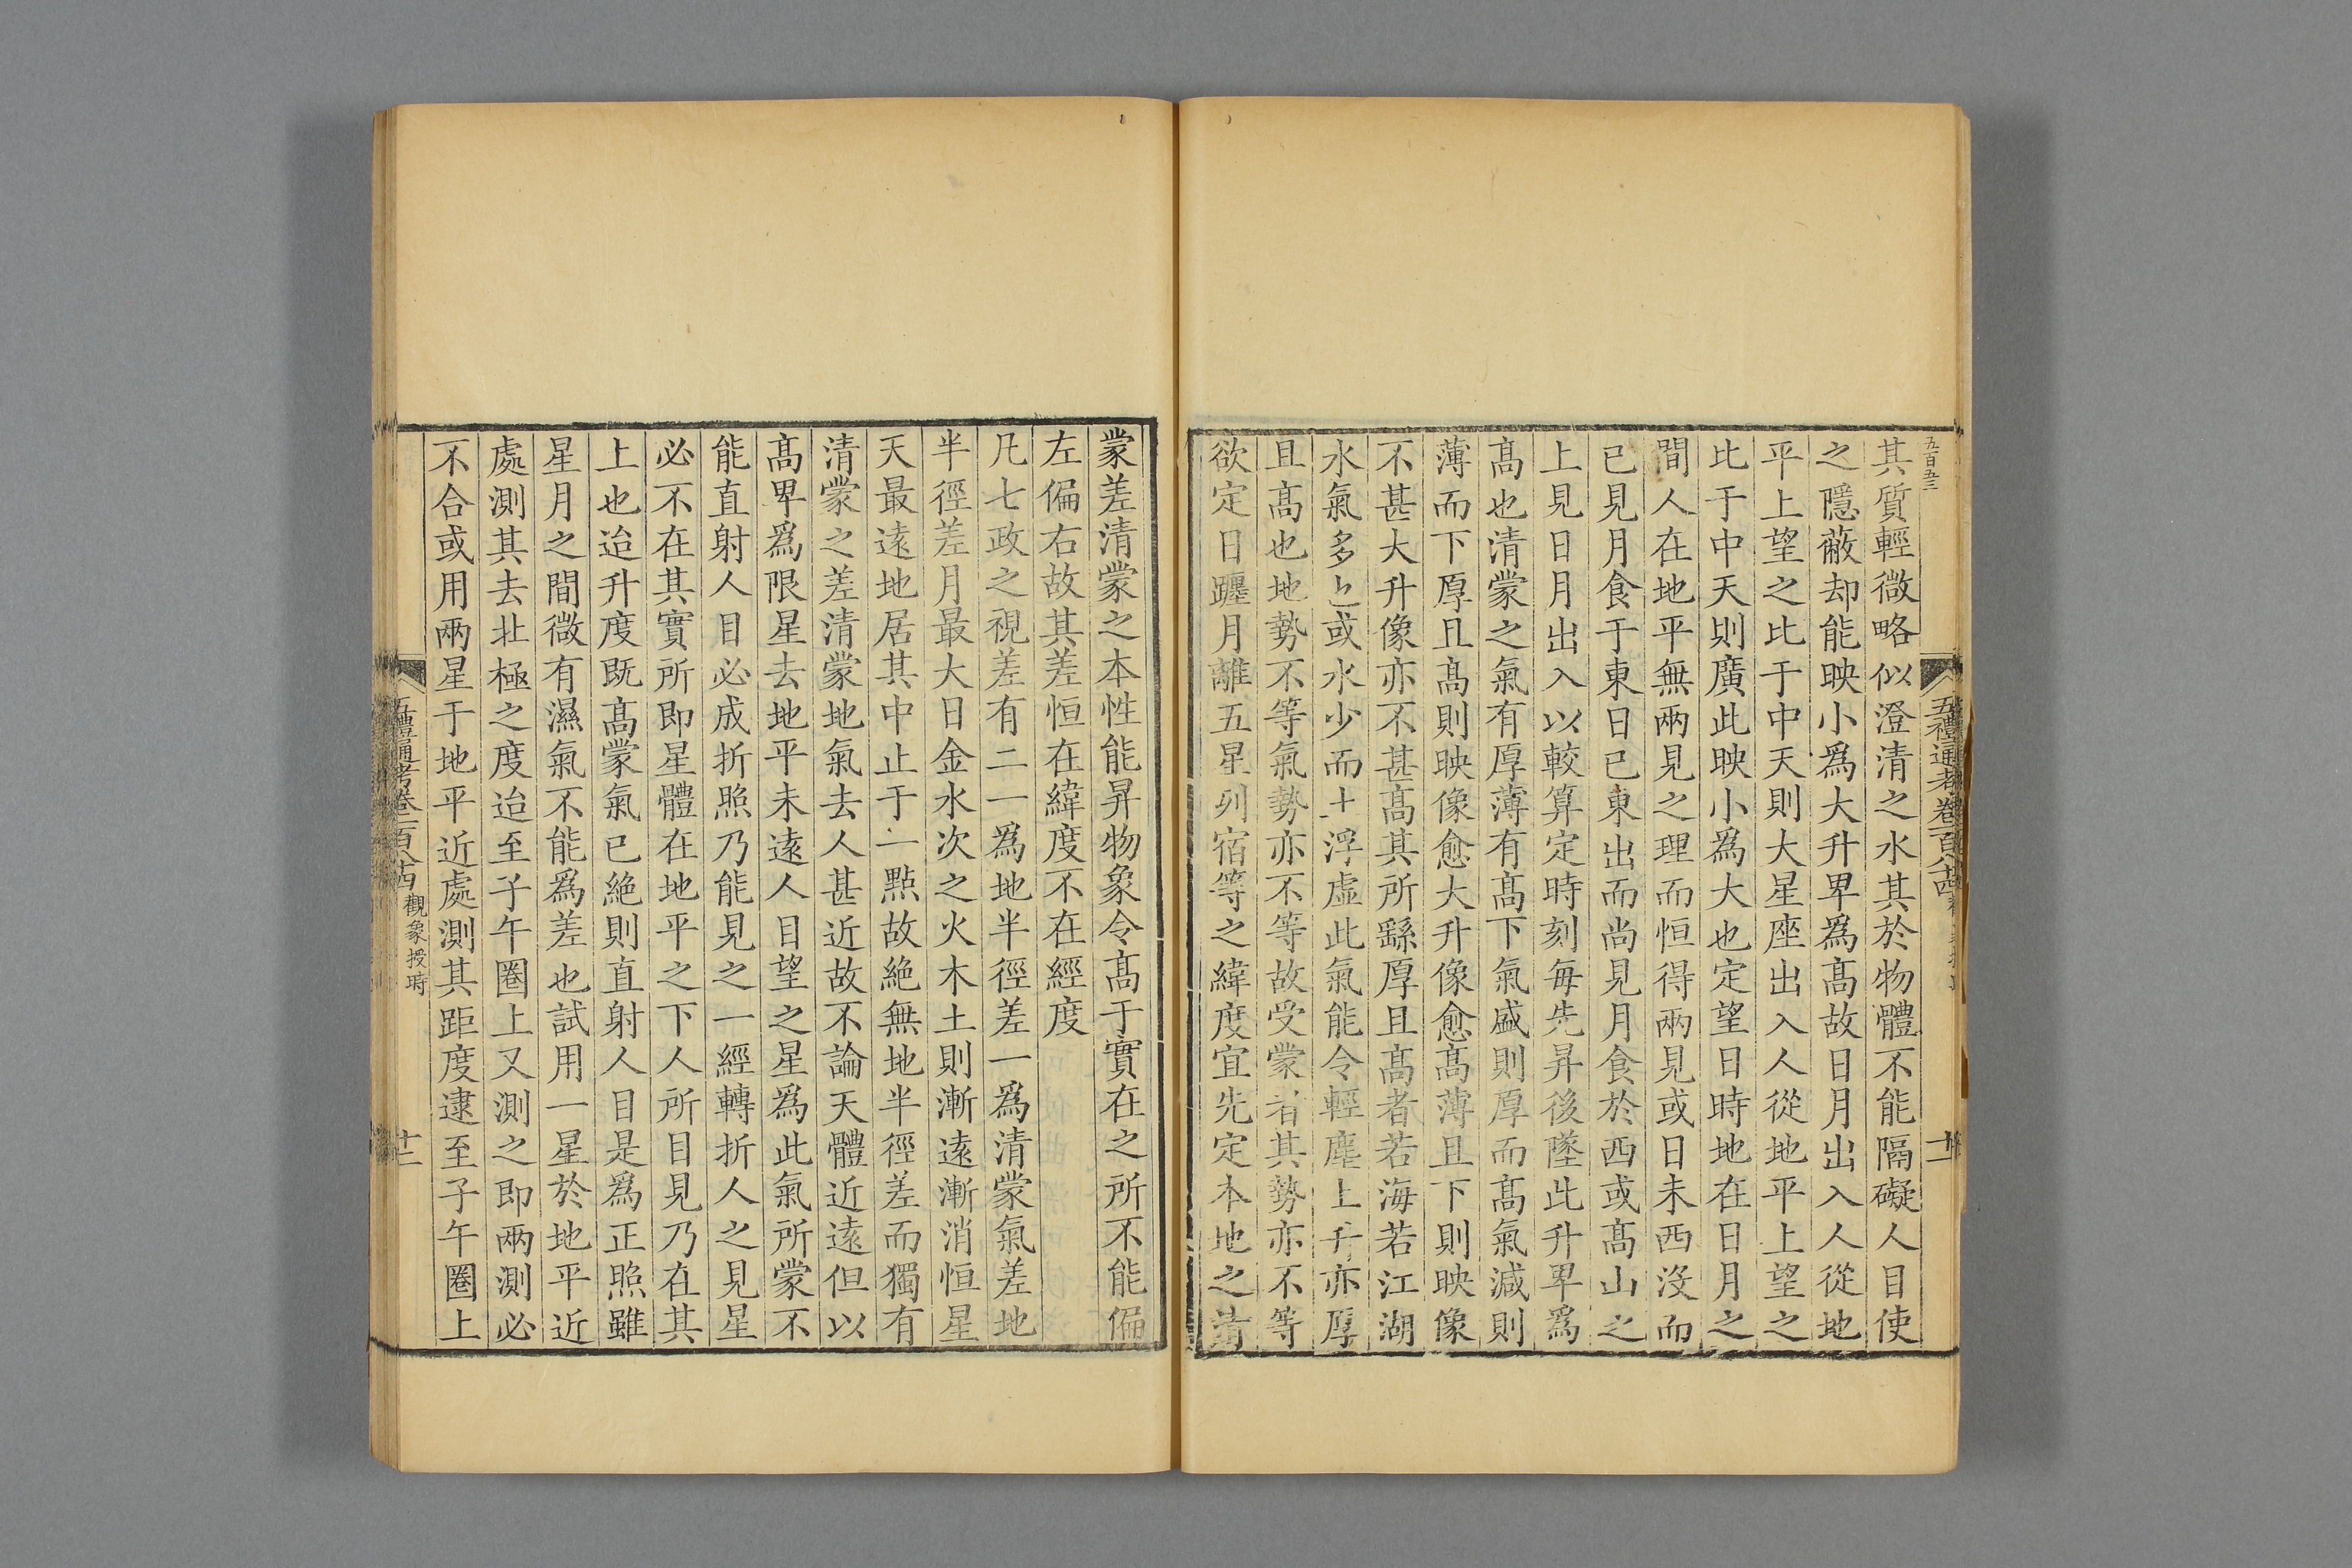 五百五三
五禮通考卷一百八十四
十一
其質輕微略似澄清之水其於物體不能隔礙人目使
之隱蔽却能映小爲大升卑爲髙故日月出入人從地
平上望之比于中天則大星座出入人從地平上望之
比于中天則廣此映小爲大也定望日時地在日月之
間人在地平無兩見之理而恒得兩見或日未西沒而
已見月食于東日已東出而尚見月食於西或髙山之
上見日月出入以較算定時刻每先昇後墜此升卑爲
髙也清蒙之氣有厚薄有髙下氣盛則厚而髙氣減則
薄而下厚且髙則映像愈大升像愈髙薄且下則映像
不甚大升像亦不甚髙其所繇厚且髙者若海若江湖
水氣多也或水少而土浮虛此氣能令輕塵上升亦厚
且髙也地勢不等氣勢亦不等故受蒙者其勢亦不等
欲定日躔月離五星列宿等之緯度宜先定本地之清
蒙差清蒙之本性能昇物象令髙于實在之所不能偏
左偏右故其差恒在緯度不在經度
凡七政之視差有二一爲地半徑差一爲清蒙氣差地
半徑差月最大日金水次之火木土則漸遠漸消恒星
天最遠地居其中止于一點故絕無地半徑差而獨有
清蒙之差清蒙地氣去人甚近故不論天體近遠但以
髙卑爲限星去地平未遠人目望之星爲此氣所蒙不
能直射人目必成折照乃能見之一經轉折人之見星
必不在其實所即星體在地平之下人所目見乃在其
上也迨升度既髙蒙氣已絕則直射人目是爲正照雖
星月之間微有濕氣不能爲差也試用一星於地平近
處測其去北極之度迨至子午圈上又測之即兩測必
不合或用兩星于地平近處測其距度逮至子午圈上
五禮通考卷一百八十四 觀象授時
十二